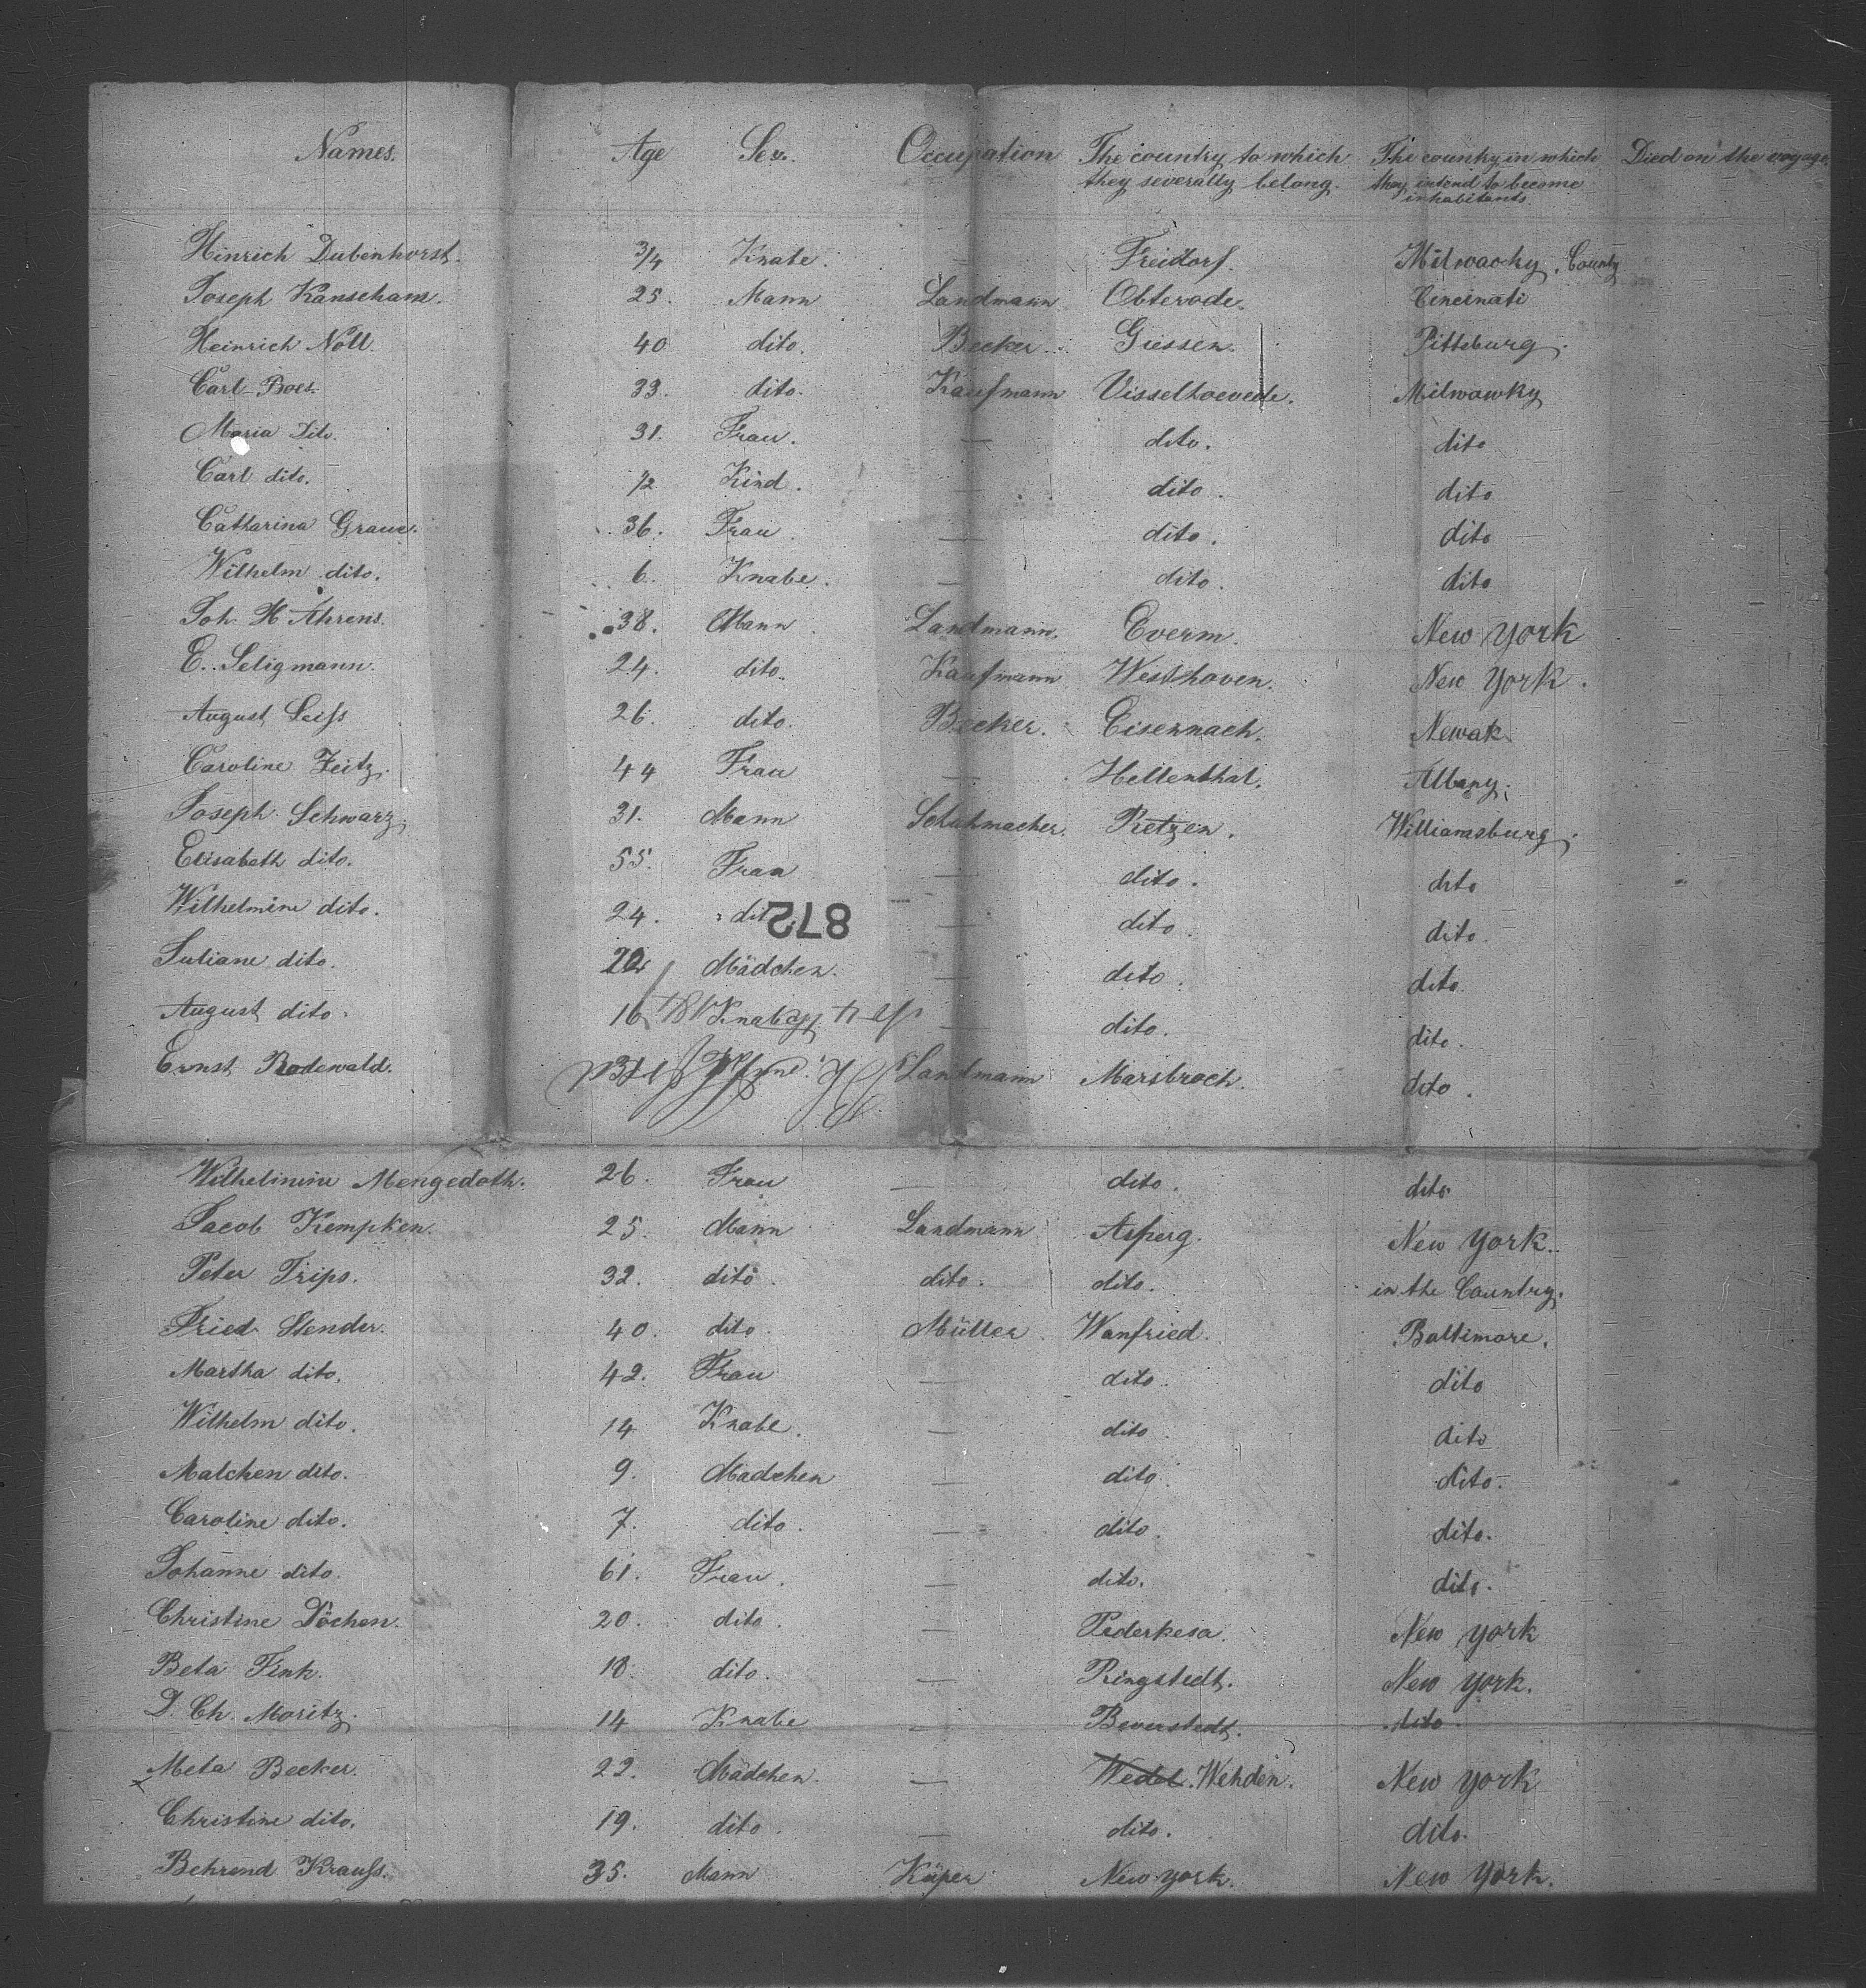 Names. Age Sex. Occupation The country to which they severally belong. The country in which they intend to become inhabitants. Died on the voyage.
Hinrich Dubenhorst. 3/4 Knabe. — Freidorf. Milwacky, County
Joseph Kanscham. 25. Mann Landmann Obterode. Cincinati
Heinrich Noll. 40 dito. Becker. Giessen. Pittsburg.
Carl Boes. 33. dito. Kaufmann Visselhoevede. Milwowky
Maria Dito. 31. Frau. — dito. dito
Carl dito. 1/2 Kind. — dito. dito
Catharina Graue. 36. Frau. — dito. dito
Wilhelm dito. 6. Knabe. — dito. dito
Joh. H Ahrens. 38. Mann. Landmann. Everm. New York
E. Seligmann. 24. dito. Kaufmann Westhoven. New York.
August Leiss 26. dito. Becker. Eisernach. Newak.
Caroline Zeitz. 44 Frau — Hellenthal. Albany.
Joseph Schwarz. 31. Mann Schuhmacher. Retzen. Williamsburg.
Elisabeth dito. 55. Frau — dito. dito
Wilhelmine dito. 24. dito — dito. dito.
872
Juliane dito. Mädchen. — dito. dito.
August dito. 16 Knabe — dito. dito.
Ernst Rodewald. Landmann Marsbroch. dito.
Wilhelmine Mengedoth. 26. Frau — dito. dito.
Jacob Kempken. 25. Mann Landmann Asperg. New York.
Peter Trips. 32. dito. dito. dito. in the Country.
Fried Stender. 40. dito. Müller. Wanfried. Baltimore.
Martha dito. 42. Frau — dito. dito
Wilhelm dito. 14 Knabe. — dito. dito
Malchen dito. 9. Madchen — dito. dito.
Caroline dito. 7. dito. — dito. dito.
Johanne dito. 61. Frau. — dito. dito.
Christine Döchen. 20. dito. — Pederkesa. New York
Beta Fink. 18. dito. — Ringstedt. New York.
D. Ch. Moritz. 14 Knabe — Beverstedt. dito.
Meta Becker. 22. Mädchen. — Wedel. Wehden. New York
Christine dito. 19. dito. — dito. dito.
Behrend Krauss. 35. Mann Küper New York. New York.